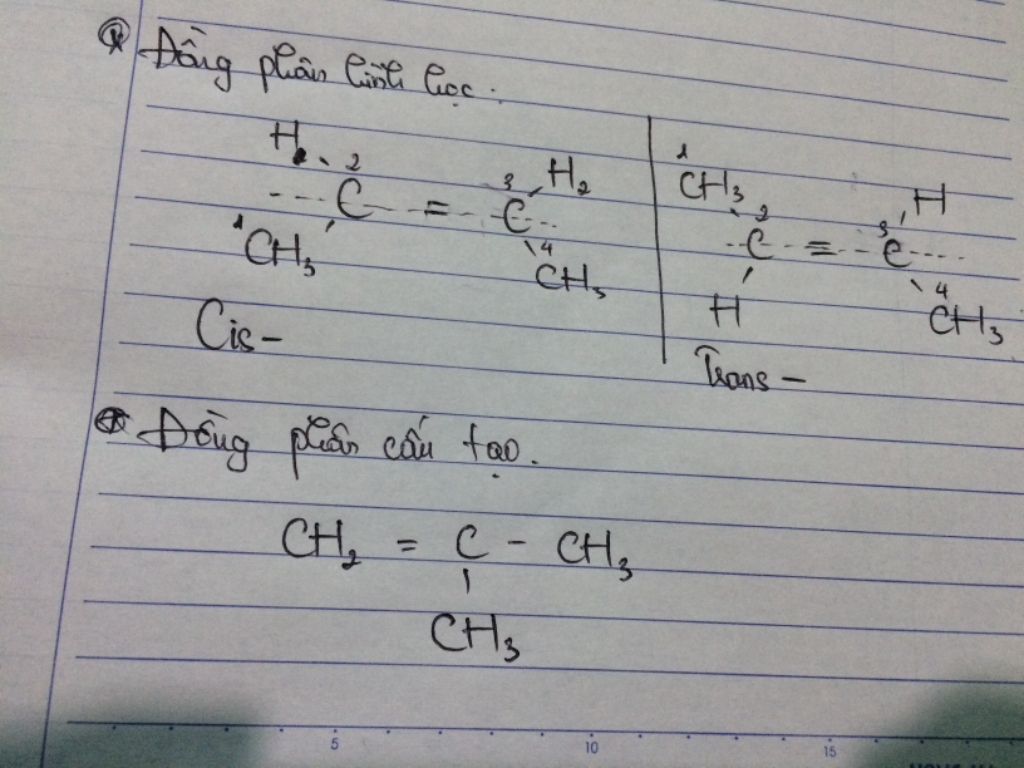 Đồng phân hình học.
H 2 3 H2
C = C
1 CH3 4 CH3
Cis-
1 CH3 2 3 H
C = C
H 4 CH3
Trans-
Đồng phân cấu tạo.
CH2 = C - CH3
CH3
5 10 15